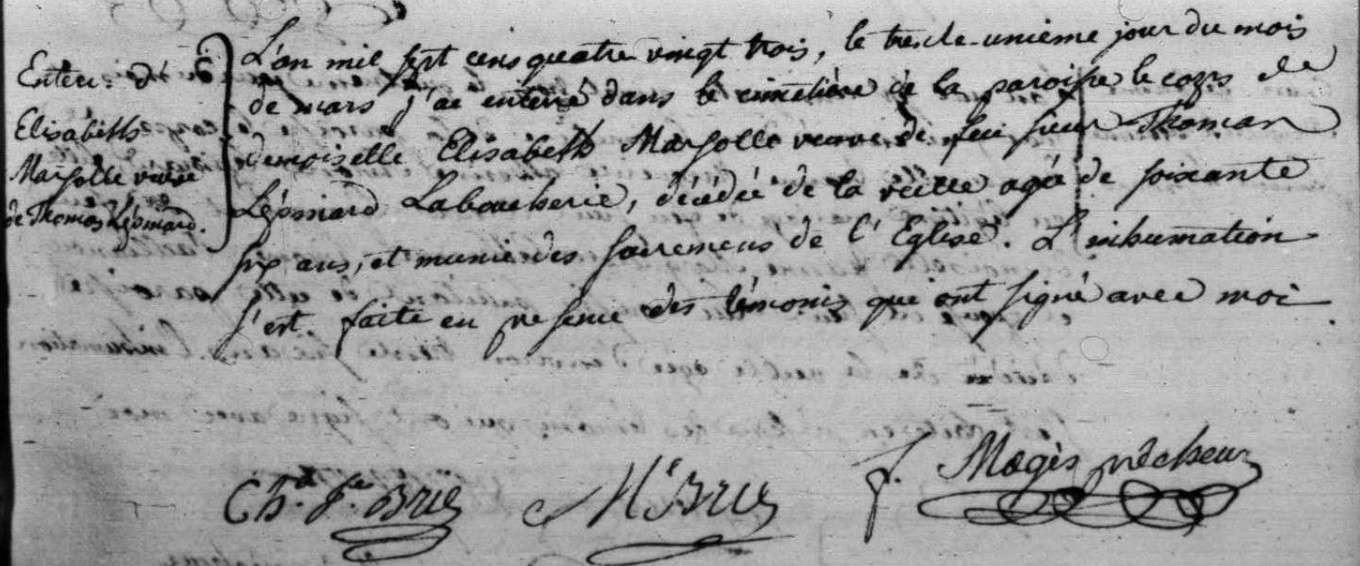 Enter: d'
Elisabeth
Marsolle veuve
de Thomas Léonard.
L'an mil sept cens quatre vingt trois, le trente-unième jour du mois
de mars j'ai enterré dans le cimetière de la paroisse le corps de
demoiselle Elisabeth Marsolle veuve de feu sieur Thomas
Léonard Laboucherie, décédée de la veille agée de soixante
six ans, et munie des sacremens de l'Eglise. L'inhumation
s'est faite en presence des témoins qui ont signé avec moi
Brie
Brie
f. Magès